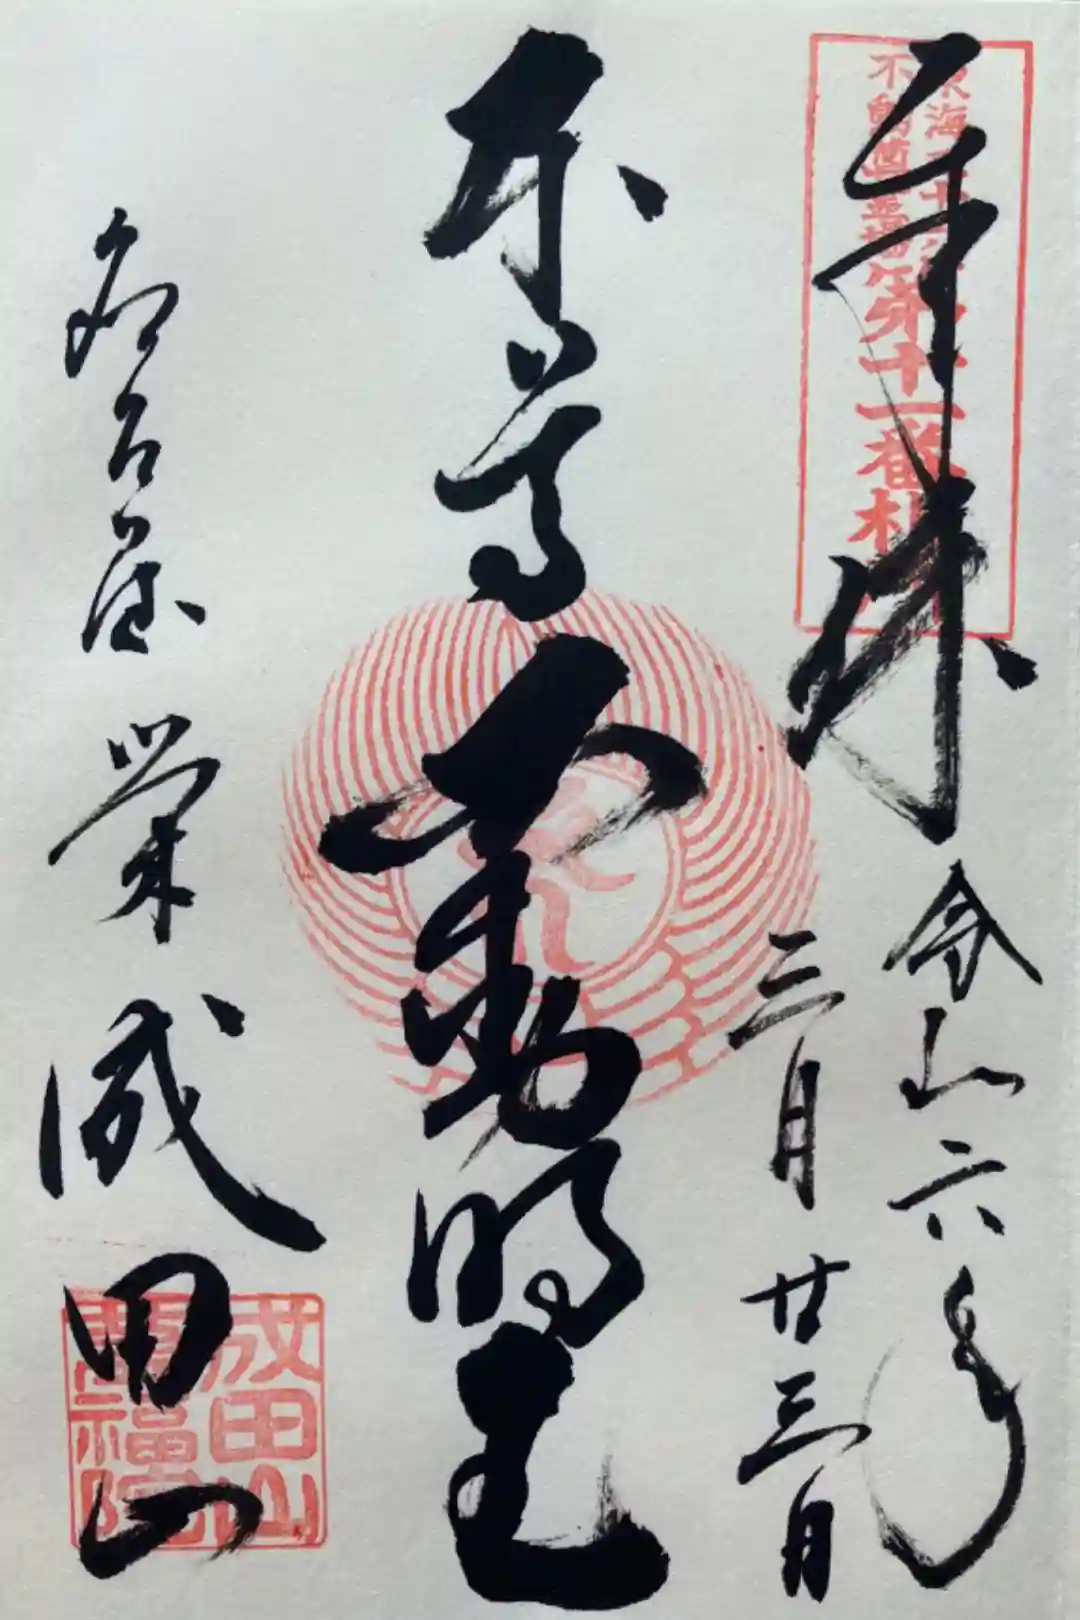 奉拝
令和六年
三月廿三日
東海三十六
不動尊霊場
第十一番札所
本尊
不動明王
名古屋 栄
成田山
成田山
萬福院